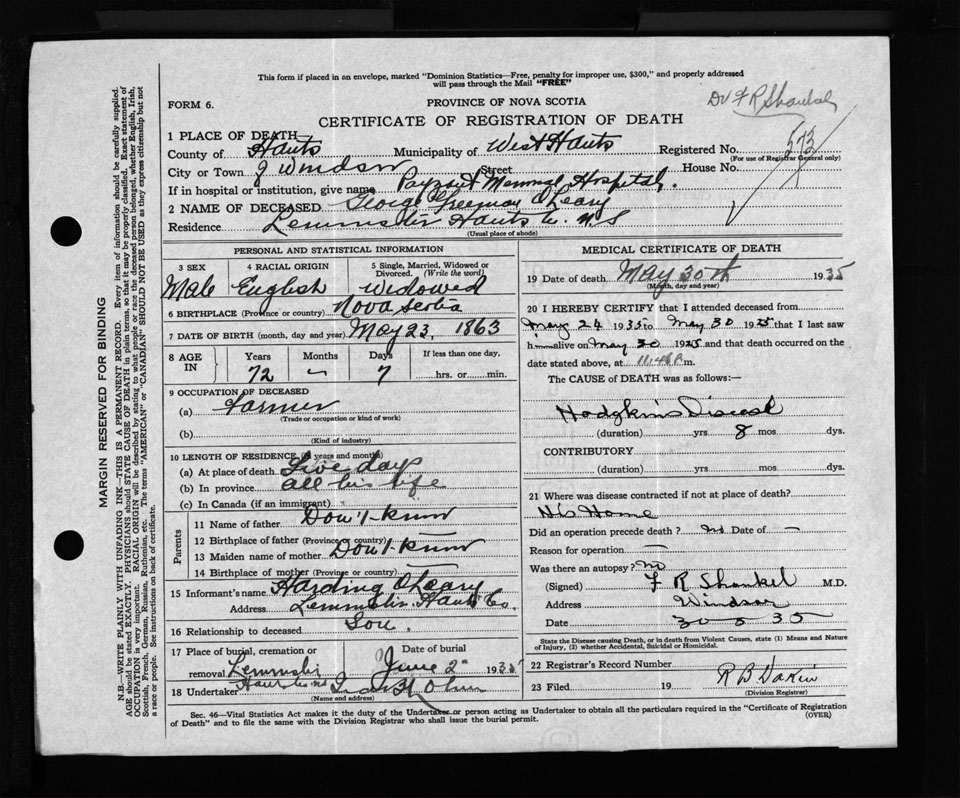 This form if placed in an envelope, marked "Dominion Statistics—Free, penalty for improper use, $300," and properly addressed
will pass through the Mail "FREE"
Dr F R Shankel
FORM 6.
PROVINCE OF NOVA SCOTIA
CERTIFICATE OF REGISTRATION OF DEATH
1 PLACE OF DEATH
County of Hants Municipality of West Hants Registered No. 573
(For use of Registrar General only)
City or Town of Windsor Street House No.
If in hospital or institution, give name Payzant Memorial Hospital.
2 NAME OF DECEASED George Freeman O'Leary
Residence Lemmster Hants Co. N S
(Usual place of abode)
PERSONAL AND STATISTICAL INFORMATION
3 SEX 4 RACIAL ORIGIN 5 Single, Married, Widowed or Divorced. (Write the word)
Male English Widowed
6 BIRTHPLACE (Province or country) Nova Scotia
7 DATE OF BIRTH (month, day and year) May 23, 1863
8 AGE IN Years Months Days If less than one day,
72 — 7 hrs. or min.
9 OCCUPATION OF DECEASED
(a) Farmer
(Trade or occupation or kind of work)
(b)
(Kind of industry)
10 LENGTH OF RESIDENCE (in years and months)
(a) At place of death Five days
(b) In province all his life
(c) In Canada (if an immigrant)
Parents
11 Name of father Don't know
12 Birthplace of father (Province or country) —
13 Maiden name of mother Don't know
14 Birthplace of mother (Province or country) —
15 Informant's name Harding O'Leary
Address Lemmster, Hants Co.
16 Relationship to deceased Son.
17 Place of burial, cremation or removal Date of burial
Lemmster June 2 1935
Hants
18 Undertaker
(Name and address)
MEDICAL CERTIFICATE OF DEATH
19 Date of death May 30th 1935
(Month, day and year)
20 I HEREBY CERTIFY that I attended deceased from
May 24 1935 to May 30 1935 that I last saw
h alive on May 30 1935 and that death occurred on the
date stated above, at 11.45 P.m.
The CAUSE of DEATH was as follows:—
Hodgkin's Disease
(duration) yrs 8 mos dys.
CONTRIBUTORY
(duration) yrs. mos. dys.
21 Where was disease contracted if not at place of death?
His Home
Did an operation precede death? no Date of —
Reason for operation —
Was there an autopsy? no
(Signed) F R Shankel M.D.
Address Windsor
Date 30-5-35
State the Disease causing Death, or in death from Violent Causes, state (1) Means and Nature
of Injury, (2) whether Accidental, Suicidal or Homicidal.
22 Registrar's Record Number
23 Filed 19 R B Dakin
(Division Registrar)
Sec. 46—Vital Statistics Act makes it the duty of the Undertaker or person acting as Undertaker to obtain all the particulars required in the "Certificate of Registration
of Death" and to file the same with the Division Registrar who shall issue the burial permit.
(OVER)
MARGIN RESERVED FOR BINDING
N.B.—WRITE PLAINLY WITH UNFADING INK—THIS IS A PERMANENT RECORD. Every item of information should be carefully supplied.
AGE should be stated EXACTLY. PHYSICIANS should STATE CAUSE OF DEATH in plain terms, so that it may be properly classified. Exact statement of
OCCUPATION is very important. RACIAL ORIGIN will be described by stating to what people or race the deceased person belonged, whether English, Irish,
Scottish, French, German, Russian, Ruthenian, etc. The terms "AMERICAN" or "CANADIAN" SHOULD NOT BE USED as they express citizenship but not
a race or people. See instructions on back of certificate.